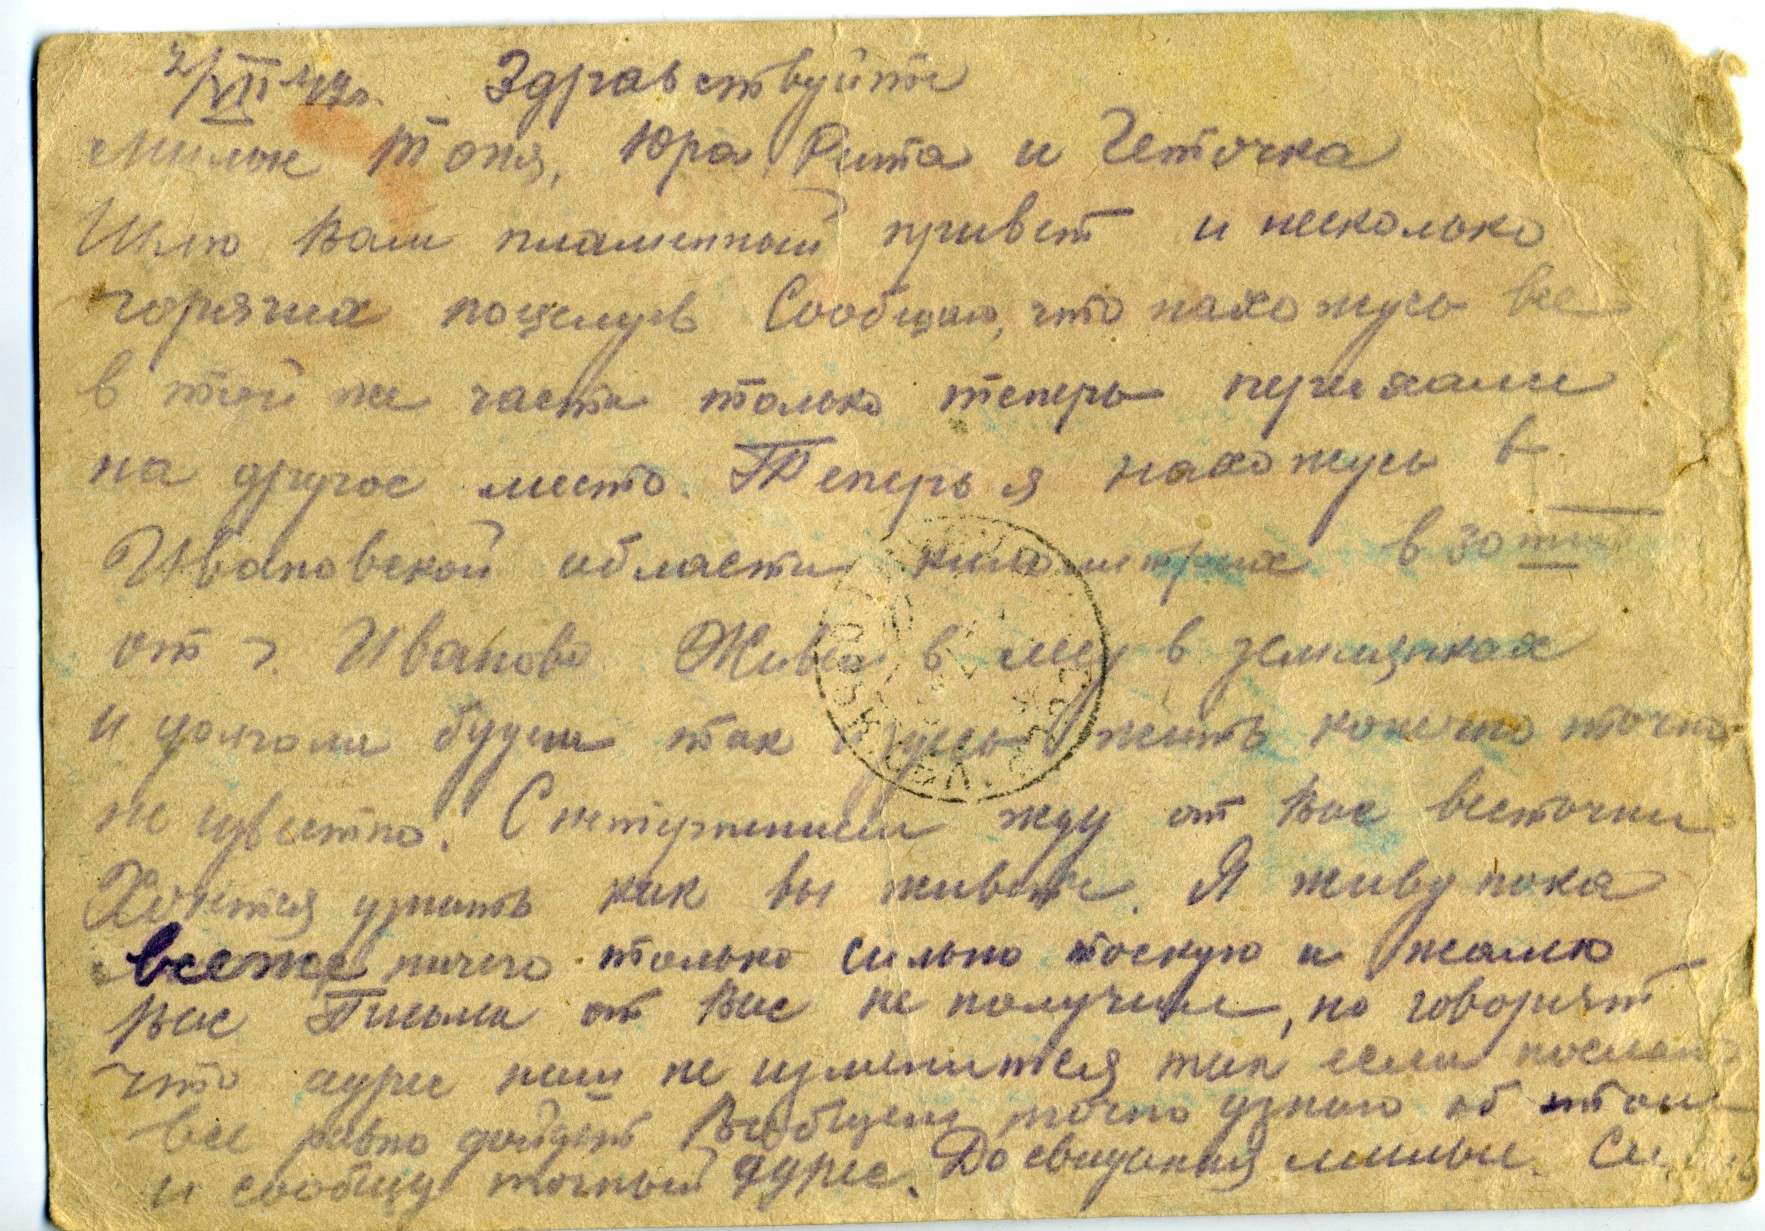 2/VII 42г. Здравствуйте
Милые Тоня, Юра, Рита и Геточка
Шлю Вам пламенный привет и несколько
горячих поцелуев Сообщаю, что нахожусь все
в той же части только теперь переехали
на другое место. Теперь я нахожусь в
Ивановской области километрах в 30 тии
от г. Иваново Живем в лесу в землянках
и долголи будем так здесь жить конечно точно
не известно. С нетерпением жду от Вас весточки
Хочется узнать как вы живете. Я живу пока
всеже ничего только сильно тоскую и жалею
Вас Письма от Вас не получил, но говорят
что адрес наш не изменится так если послали
все равно дойдет Вообщем точно узнаю об этом
и сообщу точный адрес. До свидания милые.